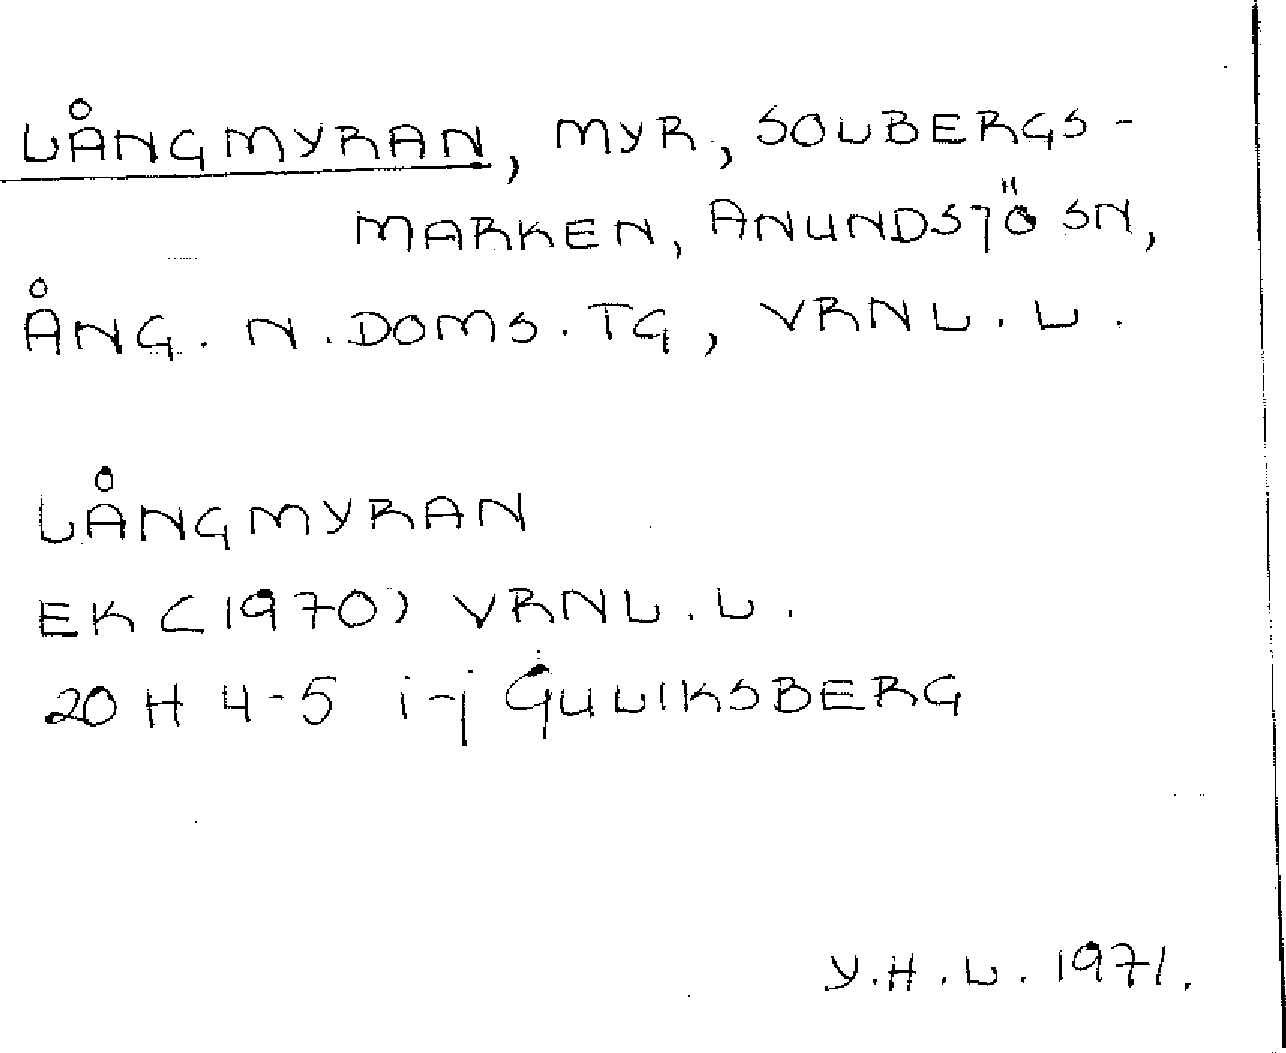 LÅNGMYRAN, MYR, SOLBERGS-
MARKEN, ANUNDSJÖ SN,
ÅNG. N. DOMS. TG, VRNL. L.
LÅNGMYRAN
EK (1970) VRNL. L.
20 H 4-5 i-j GULIKSBERG
Y.H.L. 1971.